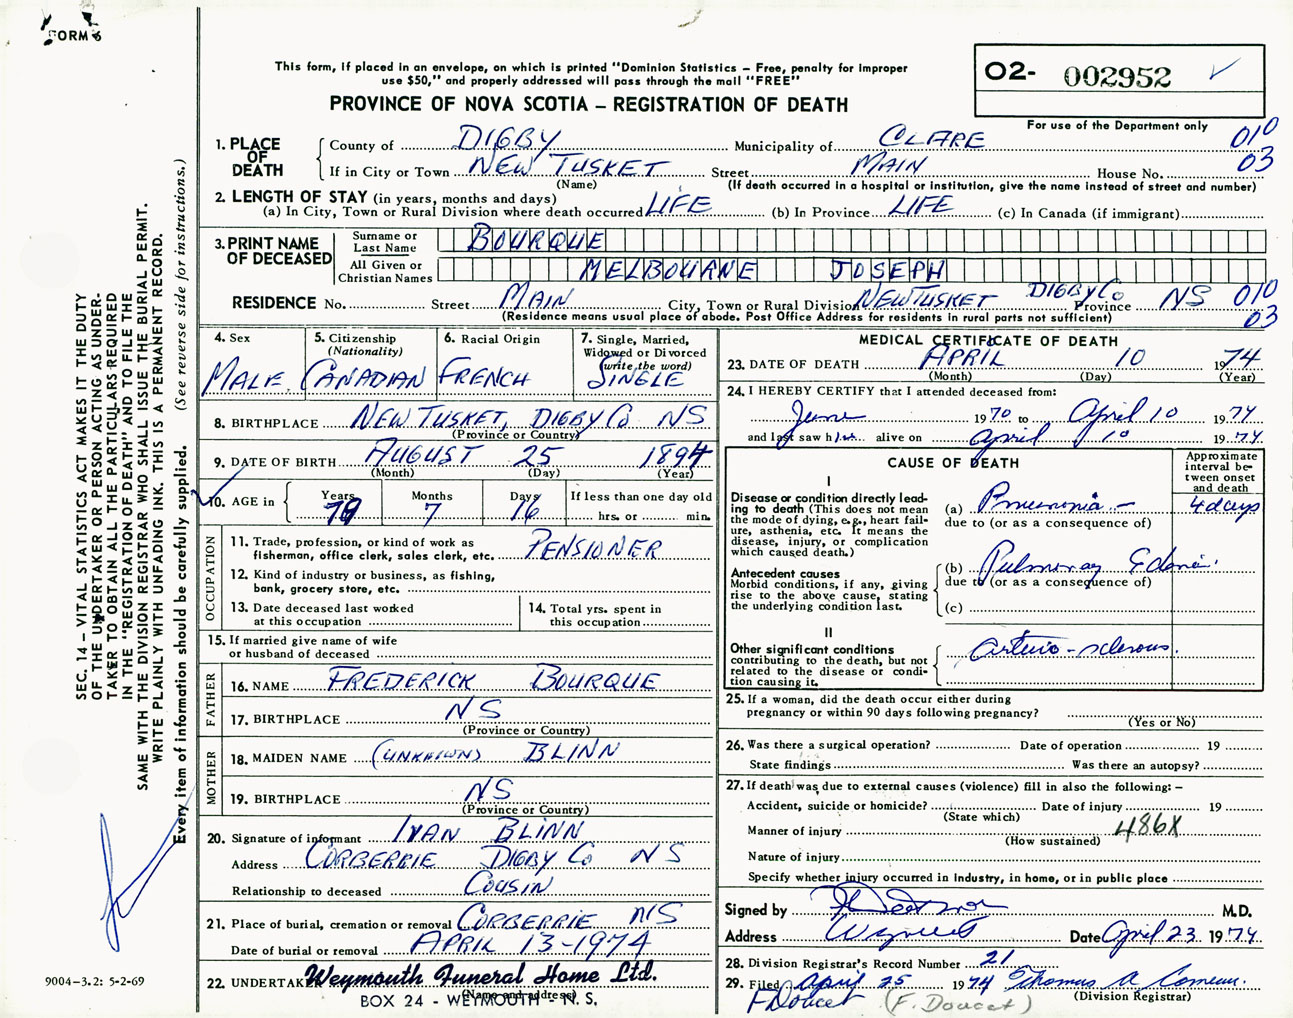 FORM 6
This form, if placed in an envelope, on which is printed "Dominion Statistics – Free, penalty for improper
use $50," and properly addressed will pass through the mail "FREE"
PROVINCE OF NOVA SCOTIA – REGISTRATION OF DEATH
O2- 002952 ✓
For use of the Department only
1. PLACE OF DEATH County of DIGBY Municipality of CLARE 010
If in City or Town NEW TUSKET Street MAIN House No. 03
(Name) (If death occurred in a hospital or institution, give the name instead of street and number)
2. LENGTH OF STAY (in years, months and days)
(a) In City, Town or Rural Division where death occurred LIFE (b) In Province LIFE (c) In Canada (if immigrant)
3. PRINT NAME OF DECEASED Surname or Last Name BOURQUE
All Given or Christian Names MELBOURNE JOSEPH
RESIDENCE No. Street MAIN City, Town or Rural Division NEW TUSKET DIGBY CO Province NS 010
(Residence means usual place of abode. Post Office Address for residents in rural parts not sufficient) 03
4. Sex MALE
5. Citizenship (Nationality) CANADIAN
6. Racial Origin FRENCH
7. Single, Married, Widowed or Divorced (write the word) SINGLE
8. BIRTHPLACE NEW TUSKET, DIGBY CO NS
(Province or Country)
9. DATE OF BIRTH AUGUST 25 1894
(Month) (Day) (Year)
10. AGE in Years 79 Months 7 Days 16 If less than one day old
hrs. or min.
OCCUPATION
11. Trade, profession, or kind of work as
fisherman, office clerk, sales clerk, etc. PENSIONER
12. Kind of industry or business, as fishing,
bank, grocery store, etc.
13. Date deceased last worked
at this occupation
14. Total yrs. spent in
this occupation
15. If married give name of wife
or husband of deceased
FATHER
16. NAME FREDERICK BOURQUE
17. BIRTHPLACE NS
(Province or Country)
MOTHER
18. MAIDEN NAME (UNKNOWN) BLINN
19. BIRTHPLACE NS
(Province or Country)
20. Signature of informant IVAN BLINN
Address CORBERRIE DIGBY CO NS
Relationship to deceased COUSIN
21. Place of burial, cremation or removal CORBERRIE NS
Date of burial or removal APRIL 13-1974
22. UNDERTAK Weymouth Funeral Home Ltd.
(Name and address)
BOX 24 - WEYMOUTH - N. S.
MEDICAL CERTIFICATE OF DEATH
23. DATE OF DEATH APRIL 10 1974
(Month) (Day) (Year)
24. I HEREBY CERTIFY that I attended deceased from:
June 1970 to April 10 1974
and last saw him alive on April 10 1974
CAUSE OF DEATH
Approximate interval between onset and death
I
Disease or condition directly leading to death (This does not mean the mode of dying, e.g., heart failure, asthenia, etc. It means the disease, injury, or complication which caused death.)
(a) Pneumonia 4 days
due to (or as a consequence of)
Antecedent causes
Morbid conditions, if any, giving rise to the above cause, stating the underlying condition last.
(b) Pulmonary Edema
due to (or as a consequence of)
(c)
II
Other significant conditions
contributing to the death, but not related to the disease or condition causing it.
Arterio-sclerosis.
25. If a woman, did the death occur either during
pregnancy or within 90 days following pregnancy?
(Yes or No)
26. Was there a surgical operation? Date of operation 19
State findings Was there an autopsy?
27. If death was due to external causes (violence) fill in also the following: –
Accident, suicide or homicide? Date of injury 19
(State which)
Manner of injury 486X
(How sustained)
Nature of injury
Specify whether injury occurred in industry, in home, or in public place
Signed by M.D.
Address Weymouth Date April 23 1974
28. Division Registrar's Record Number 21
29. Filed April 25 1974 Thomas A Comeau
(Division Registrar)
F Doucet (F. Doucet)
SEC. 14 – VITAL STATISTICS ACT MAKES IT THE DUTY
OF THE UNDERTAKER OR PERSON ACTING AS UNDERTAKER
TO OBTAIN ALL THE PARTICULARS REQUIRED
IN THE "REGISTRATION OF DEATH" AND TO FILE THE
SAME WITH THE DIVISION REGISTRAR WHO SHALL ISSUE THE BURIAL PERMIT.
WRITE PLAINLY WITH UNFADING INK. THIS IS A PERMANENT RECORD.
Every item of information should be carefully supplied. (See reverse side for instructions.)
9004–3.2: 5-2-69